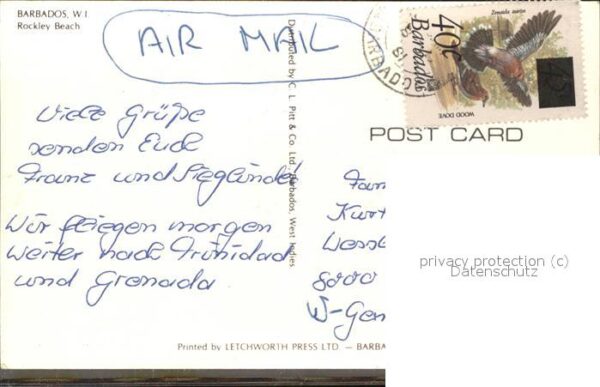 BARBADOS, W.I.
Rockley Beach
AIR MAIL
Zenaida aurita
40c
Barbados
WOOD DOVE
POST CARD
Viele Grüße
senden Euch
Franz und Sieglinde!
Wir fliegen morgen
weiter nach Trinidad
und Grenada
Distributed by C. L. Pitt & Co. Ltd., Barbados, West Indies
Fam
Kurt
8000
W-Gen
privacy protection (c)
Datenschutz
Printed by LETCHWORTH PRESS LTD — BARBA